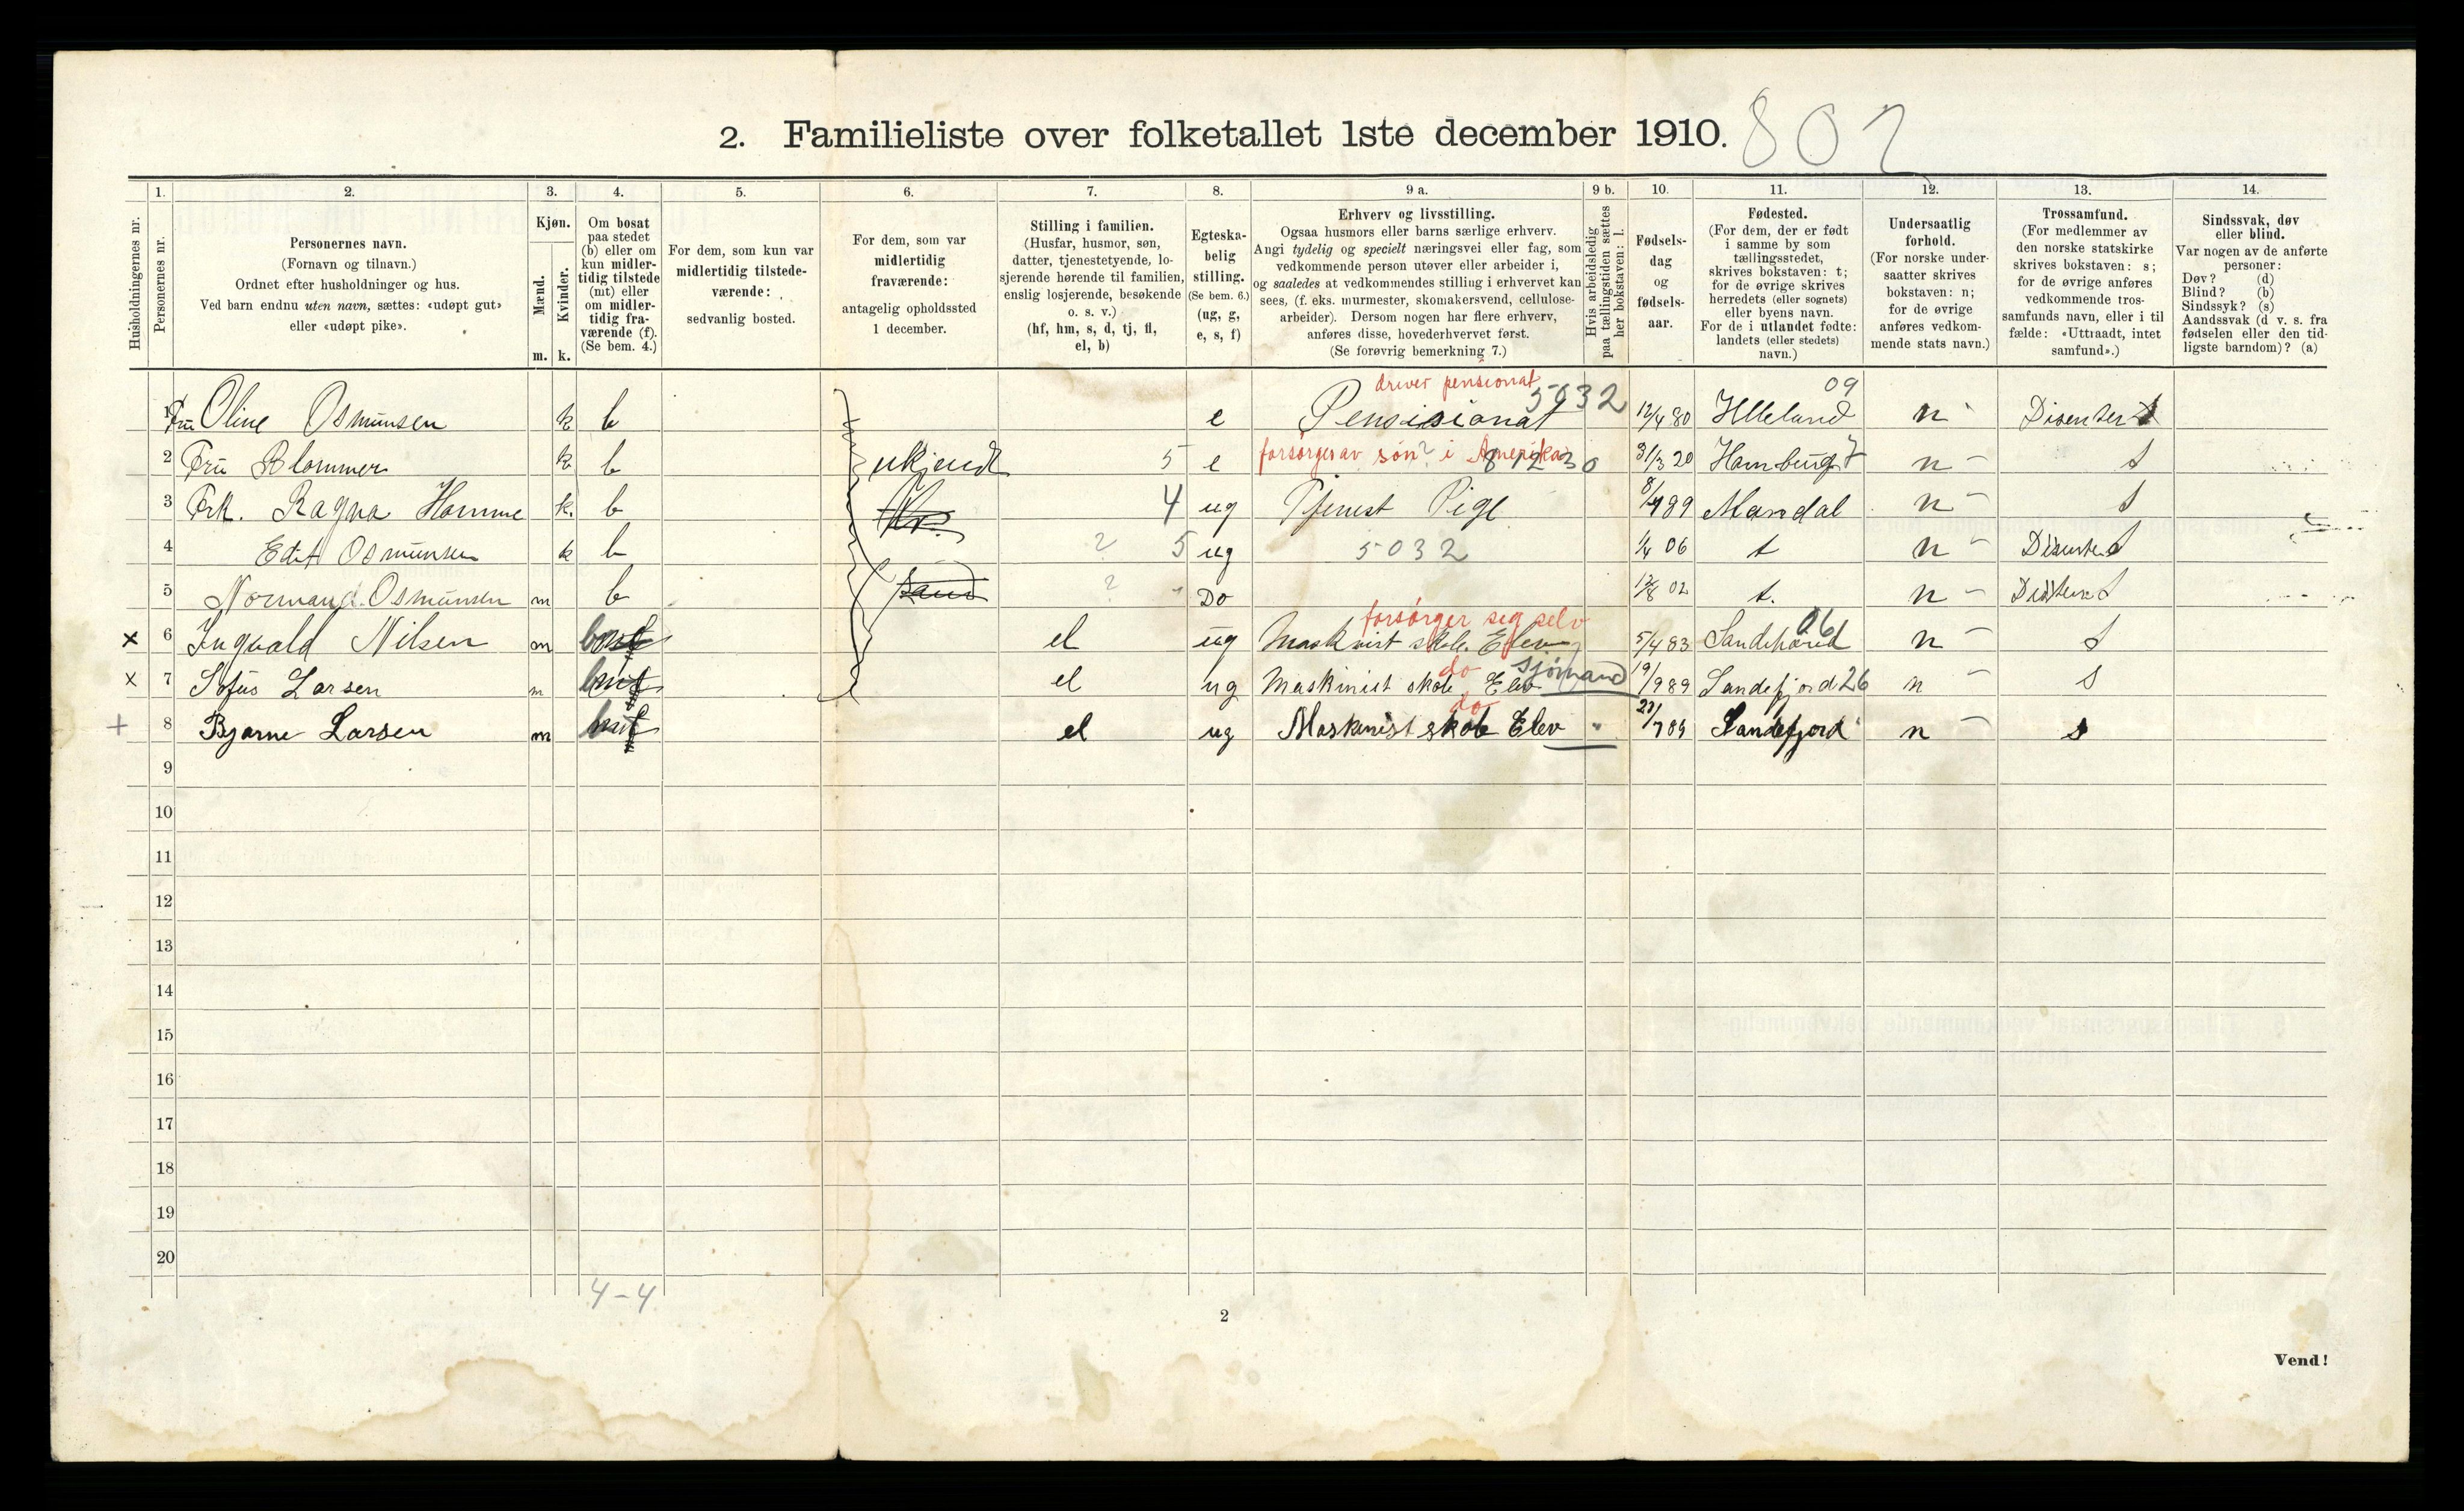 2. Familieliste over folketallet 1ste december 1910. 802
1. 2. 3. 4. 5. 6. 7. 8. 9 a. 9 b. 10. 11. 12. 13. 14.
Husholdningernes nr.
Personernes nr.
Personernes navn.
(Fornavn og tilnavn.)
Ordnet efter husholdninger og hus.
Ved barn endnu uten navn, sættes: «udøpt gut»
eller «udøpt pike».
Kjøn.
Mænd.
Kvinder.
m. k.
Om bosat
paa stedet
(b) eller om
kun midler-
tidig tilstede
(mt) eller
om midler-
tidig fra-
værende (f).
(Se bem. 4.)
For dem, som kun var
midlertidig tilstede-
værende:
sedvanlig bosted.
For dem, som var
midlertidig
fraværende:
antagelig opholdssted
1 december.
Stilling i familien.
(Husfar, husmor, søn,
datter, tjenestetyende, lo-
sjerende hørende til familien,
enslig losjerende, besøkende
o. s. v.)
(hf, hm, s, d, tj, fl,
el, b)
Egteska-
belig
stilling.
(Se bem. 6.)
(ug, g,
e, s, f)
Erhverv og livsstilling.
Ogsaa husmors eller barns særlige erhverv.
Angi tydelig og specielt næringsvei eller fag, som
vedkommende person utøver eller arbeider i,
og saaledes at vedkommendes stilling i erhvervet kan
sees, (f. eks. murmester, skomakersvend, cellulose-
arbeider). Dersom nogen har flere erhverv,
anføres disse, hovederhvervet først.
(Se forøvrig bemerkning 7.)
Hvis arbeidsledig
paa tællingstiden sættes
her bokstaven: l.
Fødsels-
dag
og
fødsels-
aar.
Fødested.
(For dem, der er født
i samme by som
tællingsstedet,
skrives bokstaven: t;
for de øvrige skrives
herredets (eller sognets)
eller byens navn.
For de i utlandet fødte:
landets (eller stedets)
navn.)
Undersaatlig
forhold.
(For norske under-
saatter skrives
bokstaven: n;
for de øvrige
anføres vedkom-
mende stats navn.)
Trossamfund.
(For medlemmer av
den norske statskirke
skrives bokstaven: s;
for de øvrige anføres
vedkommende tros-
samfunds navn, eller i til
fælde: «Uttraadt, intet
samfund».)
Sindssvak, døv
eller blind.
Var nogen av de anførte
personer:
Døv? (d)
Blind? (b)
Sindssyk? (s)
Aandssvak (d v. s. fra
fødselen eller den tid-
ligste barndom)? (a)
driver pensionat 5032 09
1 Fru Oline Osmunsen k b e Pensisionat 12/4 80 Helleland n Disenter
2 Fru Blommer k b ukjendt 5 e forsørges av søn? i Amerika 81230 31/3 20 Hamburg 7 n s
3 Frk. Ragna Homme k. b 4 ug Tjenest Pige 8/4 89 Mandal n s
4 Edit Osmunsen k b ? 5 ug 5032 1/4 06 t n Disenter
5 Normand Osmunsen m b ? " Do 12/8 02 t. n
forsørger seg selv 06
x 6 Ingvald Nilsen m el ug Maskinist skole Elev 5/4 83 Sandeherred n s
do sjømand
x 7 Sofus Larsen m el ug Maskinist skole Elev 19/9 89 Sandefjord 26 n s
do
+ 8 Bjarne Larsen m el ug Maskinist skole Elev " 23/7 89 Sandefjord n s
9
10
11
12
13
14
15
16
17
18
19
20
4-4
2
Vend!